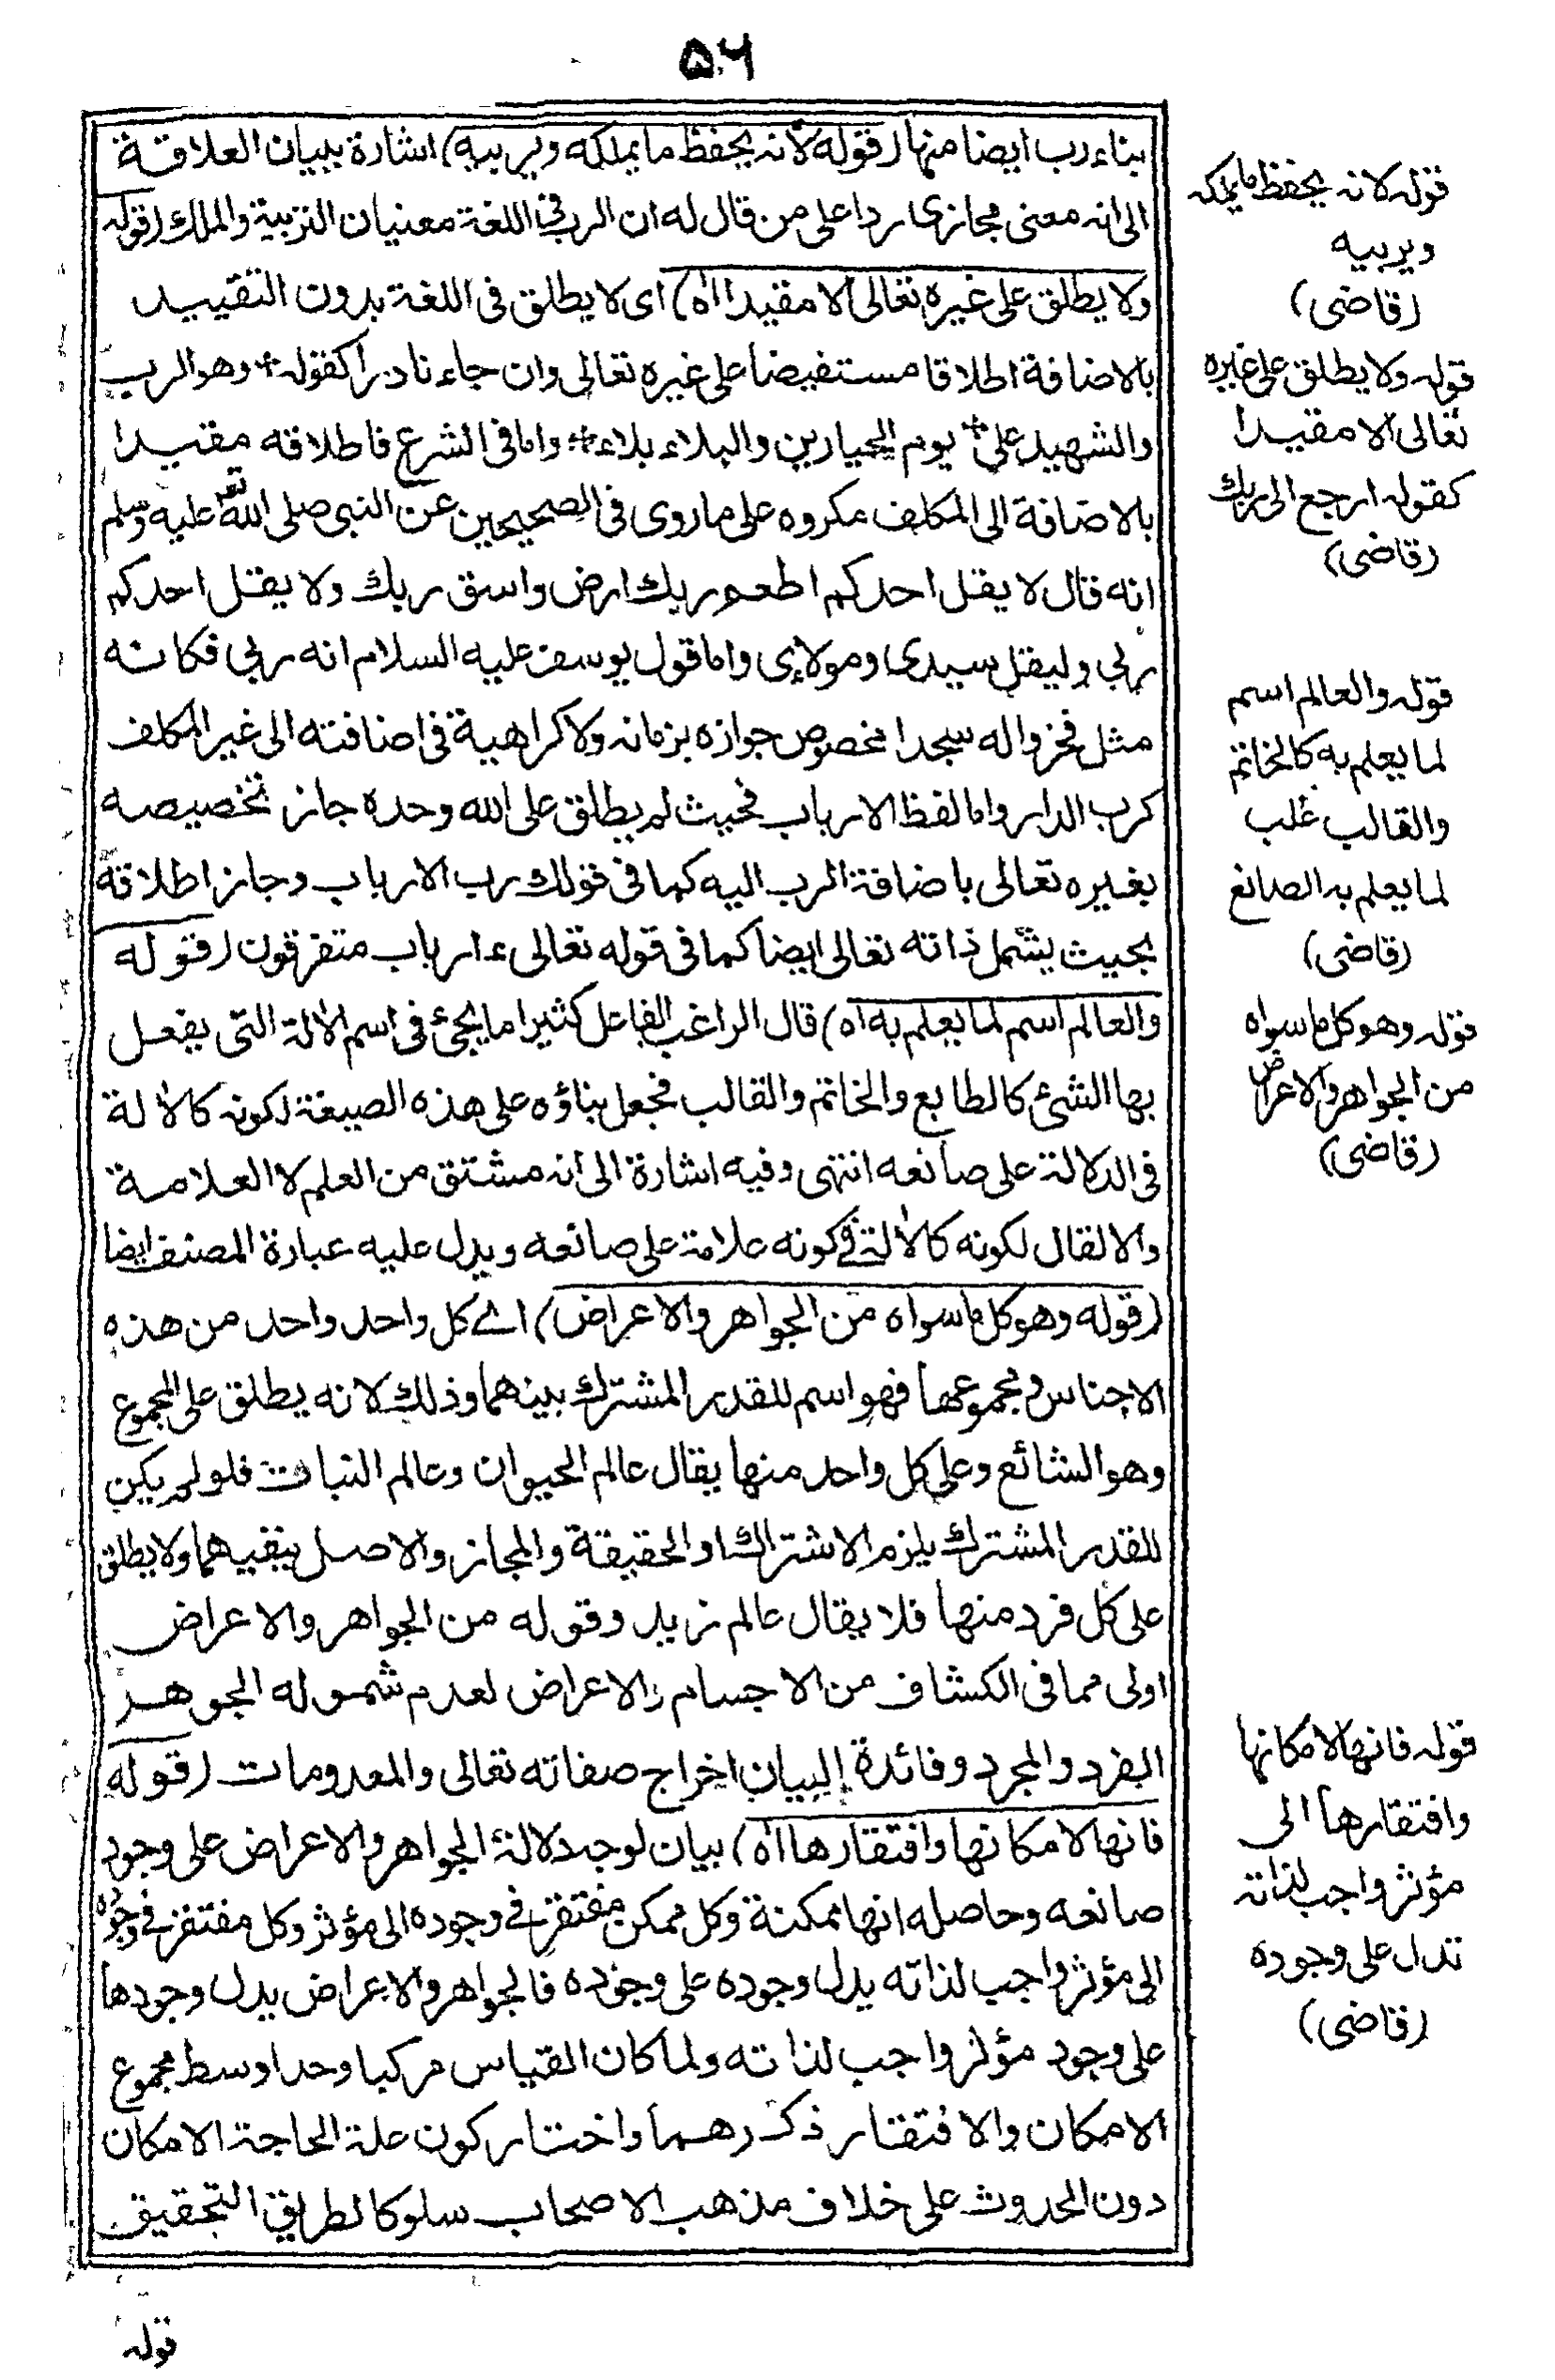 ۵۶
بناء رب ايضا منها (قوله لانه يحفظ ما يملكه ويربيه) اشارة ببيان العلاقة
الى انه معنى مجازى ردا على من قال له ان الرب فى اللغة معنيان التربية والملك (قوله
ولا يطلق على غيره تعالى الا مقيدا اه) اى لا يطلق فى اللغة بدون التقييد
بالاضافة اطلاقا مستفيضا على غيره تعالى وان جاء نادرا كقوله ؞ وهو الرب
والشهيد على ؞ يوم الحيارين والبلاء بلاء ؞ واما فى الشرع فاطلاقه مقيدا
بالاضافة الى المكلف مكروه على ما روى فى الصحيحين عن النبى صلى الله تع عليه وسلم
انه قال لا يقل احدكم اطعم ربك ارض واسق ربك ولا يقل احدكم
ربى وليقل سيدى ومولاى واما قول يوسف عليه السلام انه ربى فكانه
مثل فخروا له سجدا مخصوص جوازه بزمانه ولا كراهية فى اضافته الى غير المكلف
كرب الدار واما لفظ الارباب فحيث لم يطلق على الله وحده جاز تخصيصه
بغيره تعالى باضافة الرب اليه كما فى قولك رب الارباب وجاز اطلاقه
بحيث يشمل ذاته تعالى ايضا كما فى قوله تعالى ءارباب متفرقون (قوله
والعالم اسم لما يعلم به اه) قال الراغب الفاعل كثيرا ما يجئ فى اسم الالة التى يفعل
بها الشئ كالطابع والخاتم والقالب فجعل بناؤه على هذه الصيغة لكونه كالالة
فى الدلالة على صانعه انتهى وفيه اشارة الى انه مشتق من العلم لا العلامة
والا لقال لكونه كالالة فى كونه علامة على صانعه ويدل عليه عبارة المصنف ايضا
(قوله وهو كل ما سواه من الجواهر والاعراض) اے كل واحد واحد من هذه
الاجناس ومجموعها فهو اسم للقدر المشترك بينهما وذلك لانه يطلق على المجموع
وهو الشائع وعلى كل واحد منها يقال عالم الحيوان وعالم النبات فلو لم يكن
للقدر المشترك يلزم الاشتراك او الحقيقة والمجاز والاصل ينفيهما ولا يطلق
على كل فرد منها فلا يقال عالم زيد وقوله من الجواهر والاعراض
اولى مما فى الكشاف من الاجسام والاعراض لعدم شموله الجوهر
الفرد والمجرد وفائدة البيان اخراج صفاته تعالى والمعدومات (قوله
فانها لامكانها وافتقارها اه) بيان لوجه دلالة الجواهر والاعراض على وجود
صانعه وحاصله انها ممكنة وكل ممكن مفتقر فے وجوده الى مؤثر وكل مفتقر فے وجوده
الى مؤثر واجب لذاته يدل وجوده على وجوده فالجواهر والاعراض يدل وجودها
على وجود مؤثر واجب لذاته ولما كان القياس مركبا وحد اوسط مجموع
الامكان والافتقار ذكرهما واختار كون علة الحاجة الامكان
دون الحدوث على خلاف مذهب الاصحاب سلوكا لطريق التحقيق
قوله لانه يحفظ ما يملكه
ويربيه
(قاضى)
قوله ولا يطلق على غيره
تعالى الا مقيدا
كقوله ارجع الى ربك
(قاضى)
قوله والعالم اسم
لما يعلم به كالخاتم
والقالب غلب
لما يعلم به الصانع
(قاضى)
قوله وهو كل ما سواه
من الجواهر والاعراض
(قاضى)
قوله فانها لامكانها
وافتقارها الى
مؤثر واجب لذاته
تدل على وجوده
(قاضى)
قوله